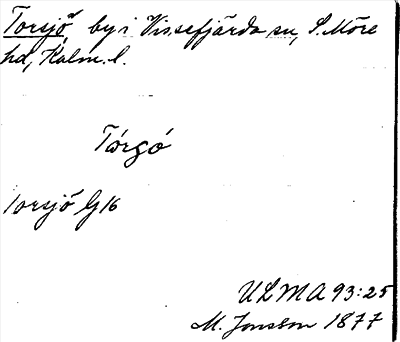 Torsjö, by i Vissefjärda sn, S. Möre
hd, Kalm. l.
Tórgó
Torsjö G16
ULMA 93:25
M. Jonsson 1877